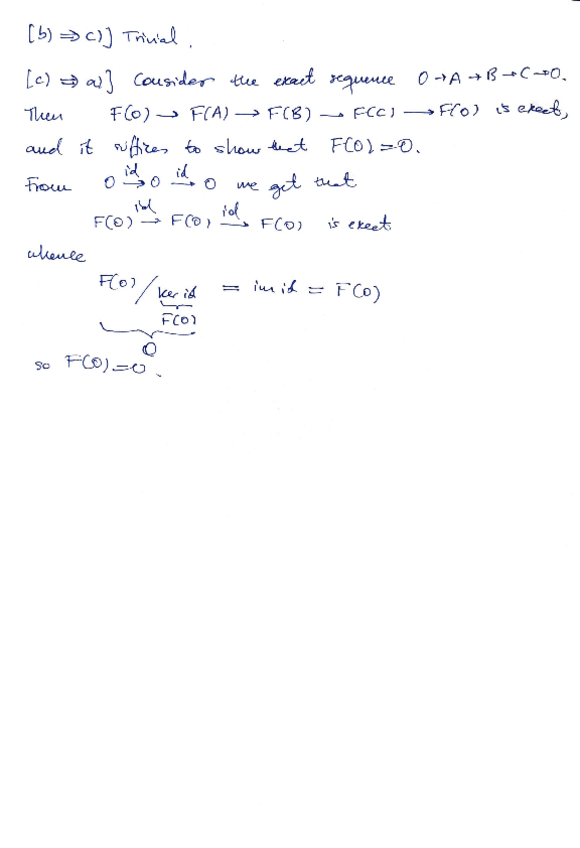 [b) ⇒ c)] Trivial.
[c) ⇒ a)] Consider the exact sequence 0→A→B→C→0.
Then F(0) → F(A) → F(B) → F(C) → F(0) is exact,
and it suffices to show that F(0)=0.
From 0 →^{id} 0 →^{id} 0 we get that
F(0) →^{id} F(0) →^{id} F(0) is exact
whence
F(0)/ker id = im id = F(0)
F(0)
0
so F(0)=0.